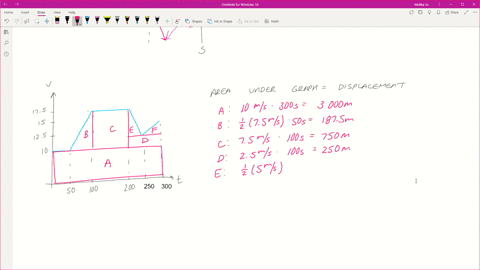 OneNote for Windows 10
Home Insert Draw View Help
Shapes Ink to Shape Ink to Text Math
S
V
AREA UNDER GRAPH = DISPLACEMENT
17.5
15
12.5
10
B C E F
D
A
50 100 200 250 300 t
A: 10 m/s · 300s = 3 000m
B: 1/2 (7.5 m/s) · 50s = 187.5m
C: 7.5 m/s · 100s = 750m
D: 2.5 m/s · 100s = 250m
E: 1/2 (5 m/s)